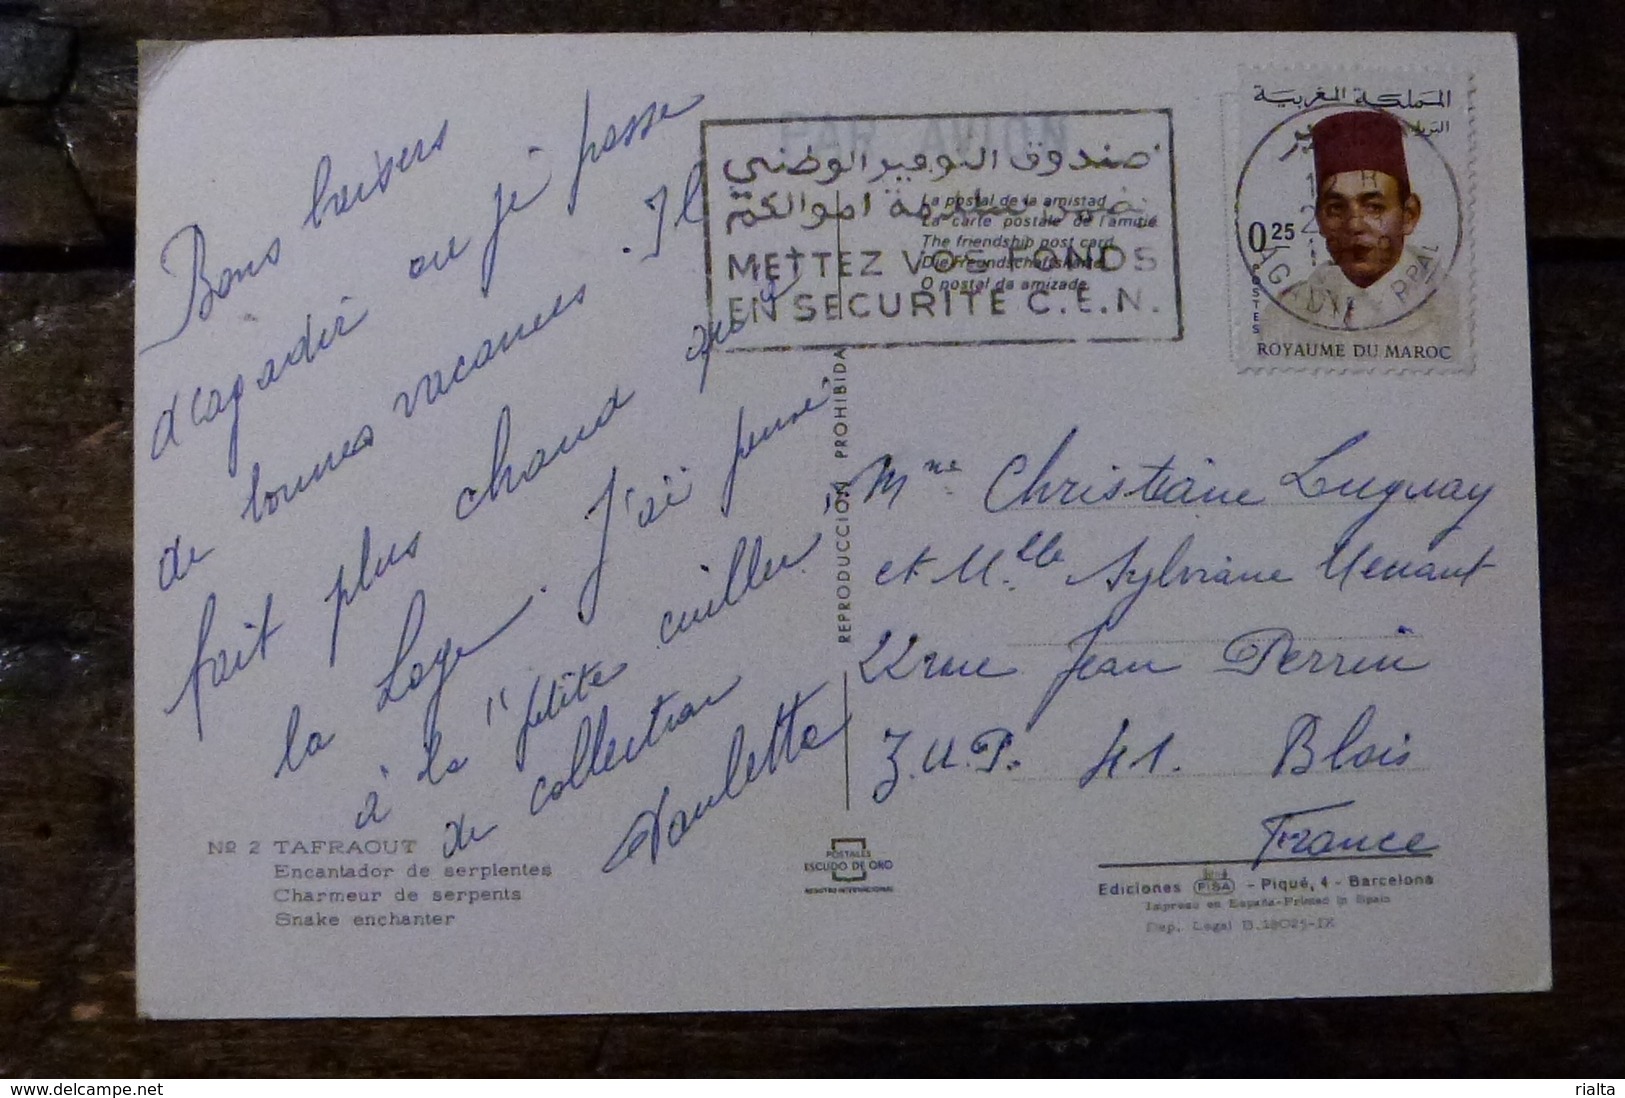 Bons baisers
d'agadir ou je passe
de bonnes vacances. Il
fait plus chaud que
la Loge. J'ai pensé
à la "petite cuiller"
de collection
Pauletta
PAR AVION
صندوق التوفير الوطني
اموالكم
METTEZ VOS FONDS
EN SECURITE C.E.N.
La postal de la amistad
La carte postale de l'amitié
The friendship post card
Die Freundschaftskarte
O postal da amizade
المملكة المغربية
البريد
0,25
POSTES
AGADIR PPAL
ROYAUME DU MAROC
REPRODUCCION PROHIBIDA
Mme Christiane Luguay
et Mlle Sylviane Menant
22 rue Jean Perrin
Z.U.P. 41. Blois
France
Nº 2 TAFRAOUT
Encantador de serpientes
Charmeur de serpents
Snake enchanter
POSTALES
ESCUDO DE ORO
REGISTRO INTERNACIONAL
Ediciones FISA - Piqué, 4 - Barcelona
Impreso en España-Printed in Spain
Dep. Legal B. 18025-IX
delcampe.net
rialta